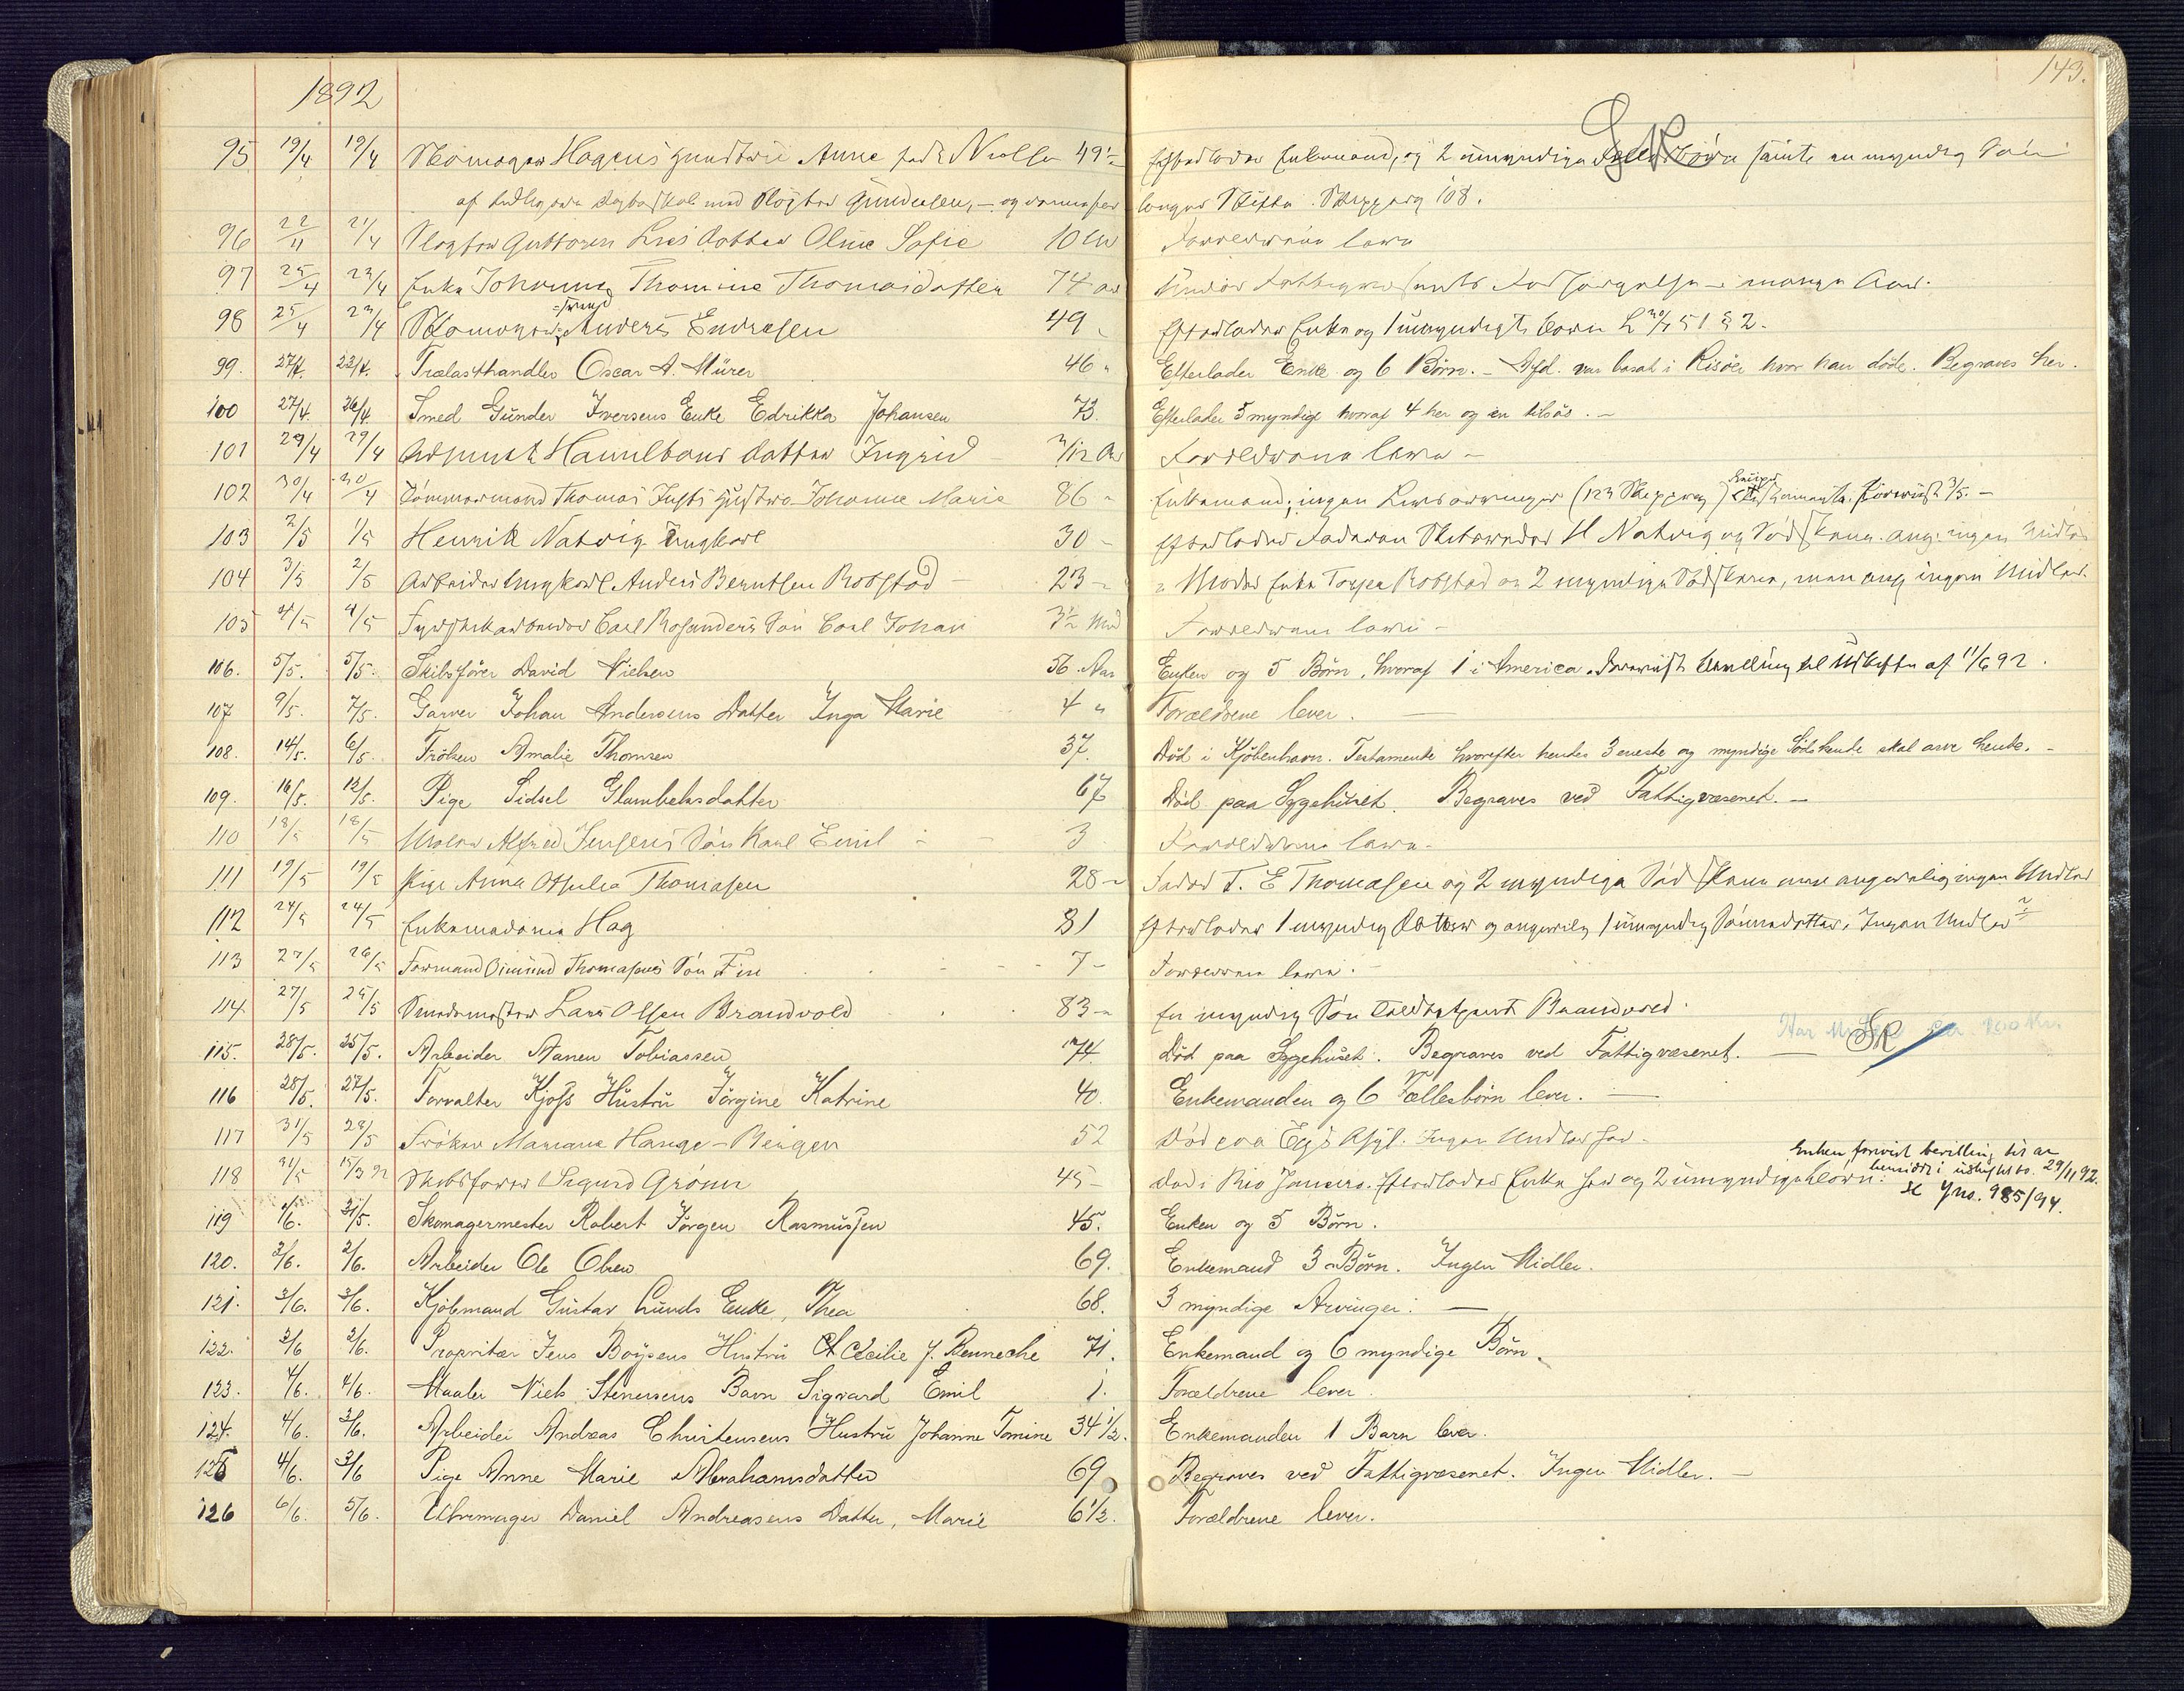 1892
143.
95 19/4 19/4 Skomager Hagens Hustru Anne født Nielsen 49½ Efterlader Enkemand, og 2 umyndige Fællesbørn samt en myndig Søn
af tidligere Ægteskab med Slagter Gundersen, – og formaser længer Skifte. Skifteprg 108.
96 22/4 21/4 Slagter Guttorm Lies Datter Oline Sofie 10 Forældrene lever
97 25/4 23/4 Enke Johanne Thomine Thomasdatter 74 Aar Under Fattigvæsenets Forsørgelse i mange Aar.
98 25/4 23/4 Skomager svend Anders Endresen 49 Efterlader Enke og 1 umyndigt Barn L 30/7 51 § 2.
99. 27/4. 22/4. Trælasthandler Oscar A. Mürer 46 " Efterlader Enke og 6 Børn. – Afd. var bosat i Risøer hvor han døde. Begraves her.
100 27/4. 26/4 Smed Gunder Iversens Enke Edrikka Johansen 73. Efterlader 5 myndige hvoraf 4 her og en tilsøs. –
101 29/4 29/4 Adjunkt Hamiltons Datter Ingrid 3/12 Aar Forældrene lever –
102 30/4 30/4 Tømmermand Thomas Justs Hustru Johanne Marie 86 " Enkemand, ingen Livsarvinger
103 2/5 1/5 Henrik Natvig Ungkarl 30 – Efterlader Faderen H Natvig og Sødskene. ang. ingen Midler
104 3/5 2/5 Arbeider Ungkarl Anders Berntsen Robstad 23 – " Moder Enke Robstad og 2 myndige Sødskene, men ang ingen Midler.
105 4/5 4/5 Fyrstikarbeider Carl Rosanders Søn Carl Johan 3½ Md Forældrene lever –
106. 5/5. 5/5. Skibsfører David Nielsen 56. Aar Enken og 5 Børn, hvoraf 1 i America. Forevist Bevilling til Uskifte af 11/6 92.
107 9/5. 7/5. Garver Johan Andersens Datter Inga Marie 4 " Forældrene lever. —
108. 14/5. 6/5. Frøken Amalie Thomsen 37. Død i Kjøbenhavn. Testamente hvorefter hendes 3 eneste og myndige Sødskende skal arve hende. –
109. 16/5. 12/5. Pige Sidsel Glambeksdatter 67 Død paa Sygehuset. Begraves ved Fattigvæsenet. –
110 18/5 18/5 Maler Alfred Jensens Søn Karl Emil – 3 Forældrene lever –
111 19/5 19/5 Pige Anna Othilia Thomasen 28 – Fader T. E Thomasen og 2 myndige Sødskene men angivelig ingen Midler
112 24/5 24/5 Enkemadame Hag 81 Efterlader 1 myndig Datter og angivelig 1 umyndig Sønnedatter, Ingen Midler
113 27/5 26/5 Formand Osmund Thomasens Søn Finn 7 – Forældrene lever. –
114. 27/5 25/5 Lars Olsen Brandvold 83 – En myndig Søn Brandvold.
115. 28/5. 25/5. Arbeider Aanen Tobiassen 74 Død paa Sygehuset. Begraves ved Fattigvæsenet. —
116 28/5. 27/5. Forvalter Kjøss Hustru Jørgine Katrine 40. Enkemanden og 6 Fællesbørn lever. —
117 31/5 28/5 Frøken Mariane Hauge-Bergen 52 Død paa Egs Asyl. Ingen Midler her.
118 31/5 15/3 92 Skibsfører Sigurd Grønn 45 – Død i Rio Janeiro. Efterlader Enke her og 2 umyndige børn.
Enken forevist bevilling til at
hensidde i uskiftet bo. 29/11 92.
Se Jno. 985/94.
119 1/6. 31/5. Skomagermester Robert Jørgen Rasmussen 45. Enken og 5 Børn.
120. 2/6. 2/6. Arbeider Ole Olsen 69. Enkemand 3 Børn. Ingen Midler.
121. 3/6. 3/6. Kjøbmand Gustav Lunds Enke, Thea 68. 3 myndige Arvinger. —
122. 3/6 2/6. Propritær Jens Boysens Hustru Cecilie f. Benneche 71. Enkemand og 6 myndige Børn.
123. 4/6. 4/6. Maaler Niels Stenersens Barn Sigvard Emil 1. Forældrene lever.
124. 4/6. 3/6. Arbeider Andreas Christensens Hustru Johanne Tomine 34½. Enkemanden 1 Barn lever.
125 4/6. 3/6 Pige Anne Marie Abrahamsdatter 69 Begraves ved Fattigvæsenet. Ingen Midler. –
126 6/6. 5/6. Uhrmager Daniel Andreasens Datter, Marie 6½. Forældrene lever.